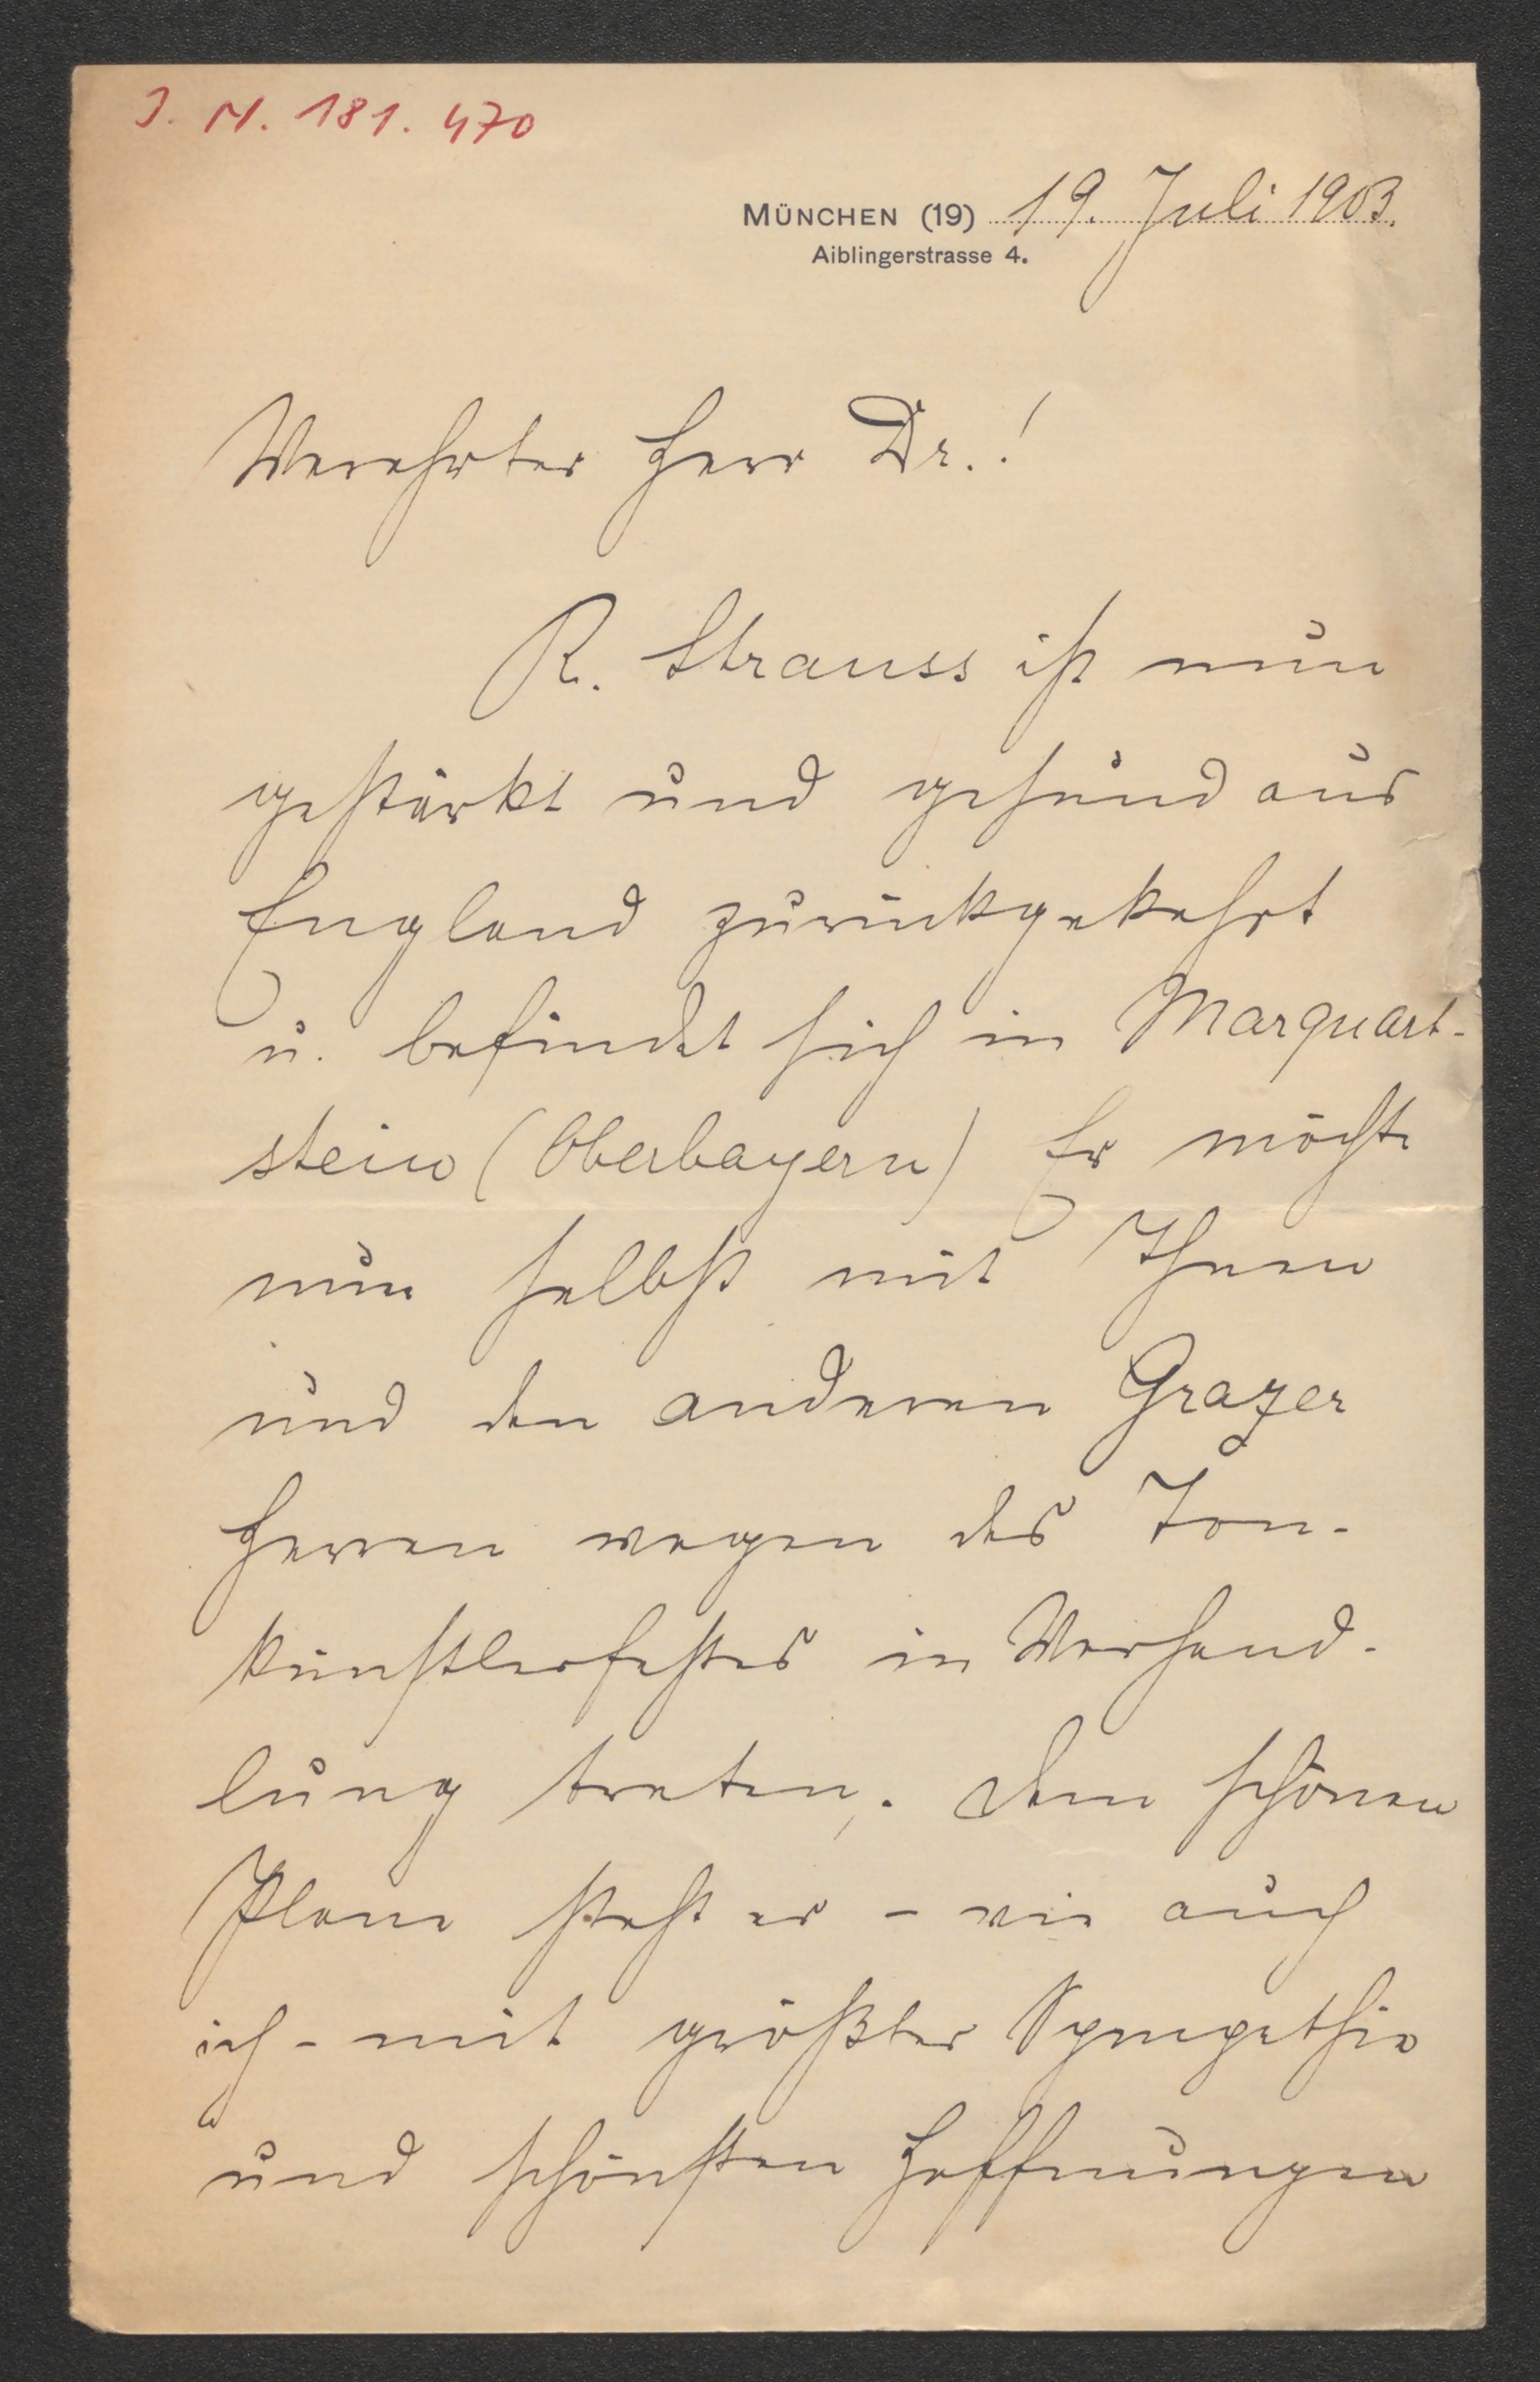 J. N. 181.470
MÜNCHEN (19) 19. Juli 1903.
Aiblingerstrasse 4.
Verehrter Herr Dr.!
R. Strauss ist nun
gestärkt und gesund aus
England zurückgekehrt
u. befindet sich in Marquart-
stein (Oberbayern) Er möchte
nun selbst mit Ihnen
und den anderen Grazer
Herren wegen des Ton-
künstlerfestes in Verhand-
lung treten. Dem schönen
Plane steht er - wie auch
ich - mit größter Sympathie
und schönsten Hoffnungen